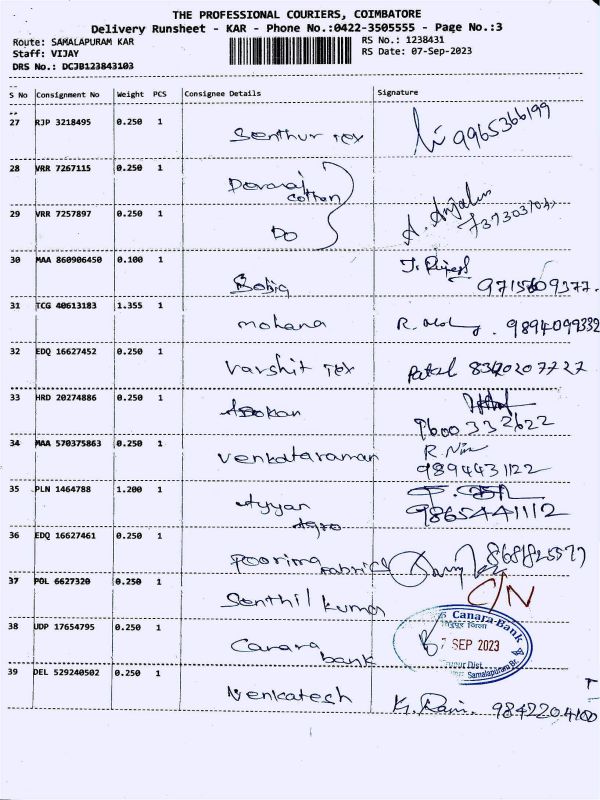 THE PROFESSIONAL COURIERS, COIMBATORE
Delivery Runsheet - KAR - Phone No.:0422-3505555 - Page No.:3
Route: SAMALAPURAM KAR RS No.: 1238431
Staff: VIJAY RS Date: 07-Sep-2023
DRS No.: DCJB123843103
S No Consignment No Weight PCS Consignee Details Signature
27 RJP 3218495 0.250 1
Senthur Tex 9965366199
28 VRR 7267115 0.250 1
Devaraj
cotton
29 VRR 7257897 0.250 1
Do A. Anjalu
30 MAA 860906450 0.100 1
9715609377.
31 TCG 40613183 1.355 1
mohana R. 9894099332
32 EDQ 16627452 0.250 1
Varshit Tex Patel 8340207727
33 HRD 20274886 0.250 1
Asokan 9600332622
34 MAA 570375863 0.250 1
Venkataraman R.
9894431122
35 PLN 1464788 1.200 1
Ayyan 9865441112
Agro
36 EDQ 16627461 0.250 1
Poorima Fabrics
37 POL 6627320 0.250 1
Senthil kumar C/N
38 UDP 17654795 0.250 1
Canara
bank
Canara Bank
7 SEP 2023
Samalapuram Br.
39 DEL 529240502 0.250 1
Venkatesh K. Rani. 9842204100